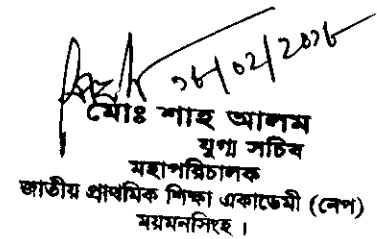 মোঃ শাহ আলম
যুগ্ম সচিব
মহাপরিচালক
জাতীয় প্রাথমিক শিক্ষা একাডেমী (নেপ)
ময়মনসিংহ ।